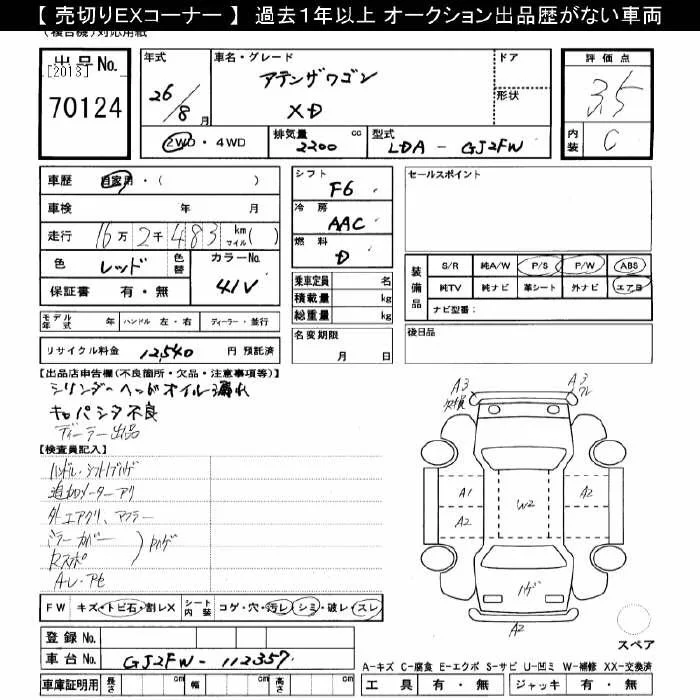 【 売切りEXコーナー 】 過去１年以上 オークション出品歴がない車両
(複合機)対応用紙
出品No.
[2013]
70124
年式
26/8月
車名・グレード
アテンザワゴン
XD
ドア
形状
2WD・4WD
排気量 cc
2200
型式
LDA - GJ2FW
評価点
3.5
内装
C
車歴 自家用・( )
車検 年 月
走行 16万2千483 km マイル( )
色 レッド 色替
カラーNo.
41V
保証書 有・無
モデル年式 年 ハンドル 左・右 ディーラー・並行
リサイクル料金 12,540 円 預託済
シフト
F6
冷房
AAC
燃料
D
乗車定員 名
積載量 kg
総重量 kg
名変期限
月 日
セールスポイント
装備品
S/R 純A/W P/S P/W ABS
純TV 純ナビ 革シート 外ナビ エアB
ナビ型番：
後日品
【出品店申告欄(不良箇所・欠品・注意事項等)】
シリンダーヘッドオイル漏れ
キャパシタ不良
ディーラー出品
【検査員記入】
ハンドル・シフトノブハゲ
追加メーターアリ
外エアクリ、マフラー
ミラーカバー
Rスポ
ハゲ
A3
A3
A1
A2
A2
W2
ハゲ
A2
スペア
FW キズ・トビ石・割レX シート内装 コゲ・穴・汚レ・シミ・破レ・スレ
登録No.
車台No. GJ2FW - 112357
車庫証明用 長さ cm 幅 cm 高さ cm
A-キズ C-腐食 E-エクボ S-サビ U-凹ミ W-補修 XX-交換済
工具 有・無 ジャッキ 有・無